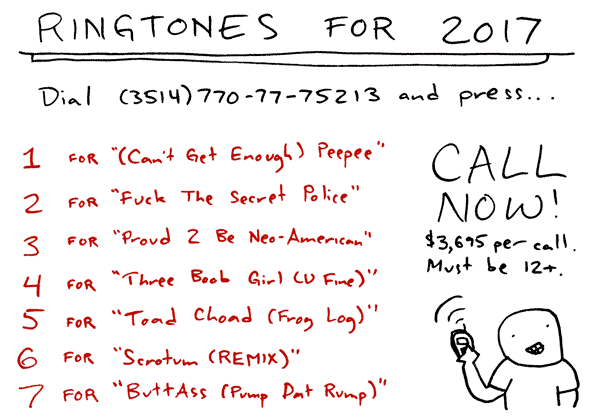 RINGTONES FOR 2017
Dial (3514)770-77-75213 and press...
1 FOR "(Can't Get Enough) Peepee"
2 FOR "Fuck The Secret Police"
3 FOR "Proud 2 Be Neo-American"
4 FOR "Three Boob Girl (U Fine)"
5 FOR "Toad Choad (Frog Log)"
6 FOR "Scrotum (REMIX)"
7 FOR "ButtAss (Pump Dat Rump)"
CALL
NOW!
$3,695 per call.
Must be 12+.